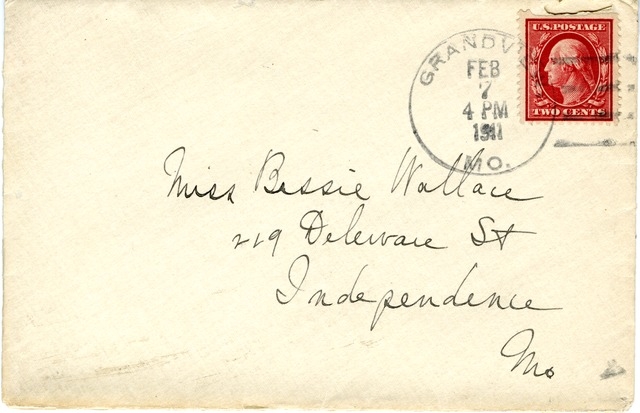 U.S. POSTAGE
TWO CENTS
GRANDV
FEB
7
4 PM
1911
MO.
Miss Bessie Wallace
219 Deleware St
Independence
Mo